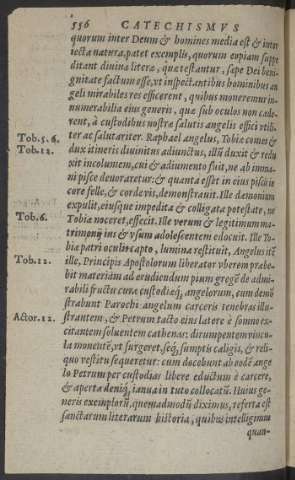 556 CATECHISMVS
quorum inter Deum & homines media est & inter
iecta natura, patet exemplis, quorum copiam suppe
ditant diuinæ literæ, quæ testantur, sæpe Dei beni-
gnitate factum esse, vt inspectantibus hominibus an
geli mirabiles res efficerent, quibus moneremur in-
numerabilia eius generis, quæ sub oculos non cade-
rent, à custodibus nostræ salutis angelis effici vtili-
Tob.5.6. ter ac salutariter. Raphael angelus, Tobiæ comes &
Tob.12. dux itineris diuinitus adiunctus, illũ duxit & redu
xit incolumem, cui & adiumento fuit, ne ab imma-
ni pisce deuoraretur: & quanta esset in eius piscis ie
core felle, & corde vis, demonstrauit. Ille dæmonium
expulit, eiusque impedita & colligata potestate, ne
Tob.6. Tobiæ noceret, effecit. Ille verum & legitimum ma-
trimonij ius & vsum adolescentem edocuit. Ille To-
biæ patri oculis capto, lumina restituit, Angelus itẽ
Tob.12. ille, Principis Apostolorum liberator vberem præbe-
bit materiam ad erudiendum pium gregẽ de admi-
rabili fructu curæ custodiæq́; angelorum, cum demõ
strabunt Parochi angelum carceris tenebras illu-
Actor.12. strantem, & Petrum tacto eius latere è somno ex-
citantem soluentem cathenas: dirumpentem vincu-
la monentẽ, vt surgeret, seq́; sumptis caligis, & reli-
quo vestitu sequeretur: cum docebunt ab eodẽ ange
lo Petrum per custodias libere eductum è carcere,
& aperta deniq́; ianua in tuto collocatũ. Huius ge-
neris exemplorũ, quemadmodũ diximus, referta est
sanctarum literarum historia, quibus intelligimus
quan-